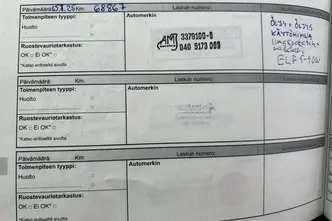 Päivämäärä: Km: 68867 Laskun numero:
Toimenpiteen tyyppi: Automerkin
Huolto
AMJ 3379100-6
040 9173 065
Ruostevauriotarkastus:
OK □ Ei OK* □
*Katso erilliseltä sivulta
öljy + öljyn
ELF 5-40W
Päivämäärä: Km: Laskun numero:
Toimenpiteen tyyppi: Automerkin
Huolto
Ruostevauriotarkastus:
OK □ Ei OK* □
*Katso erilliseltä sivulta
Päivämäärä: Km: Laskun numero:
Toimenpiteen tyyppi: Automerkin
Huolto
Ruostevauriotarkastus:
OK □ Ei OK* □
*Katso erilliseltä sivulta